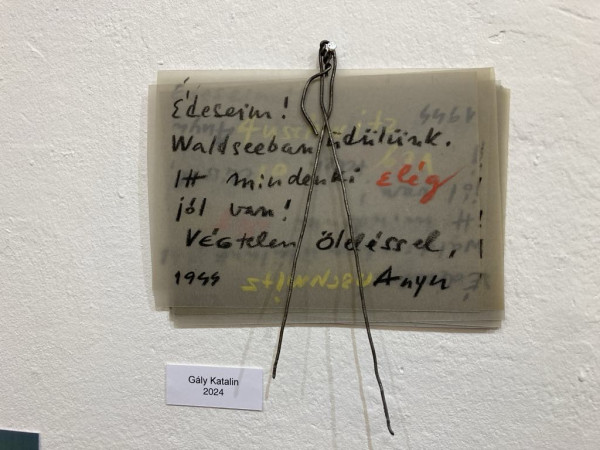 Édeseim!
Waldseeban üdülünk.
Itt mindenki elég
jól van!
Végtelen öleléssel,
1944 Auschwitz Anyu
Gály Katalin
2024